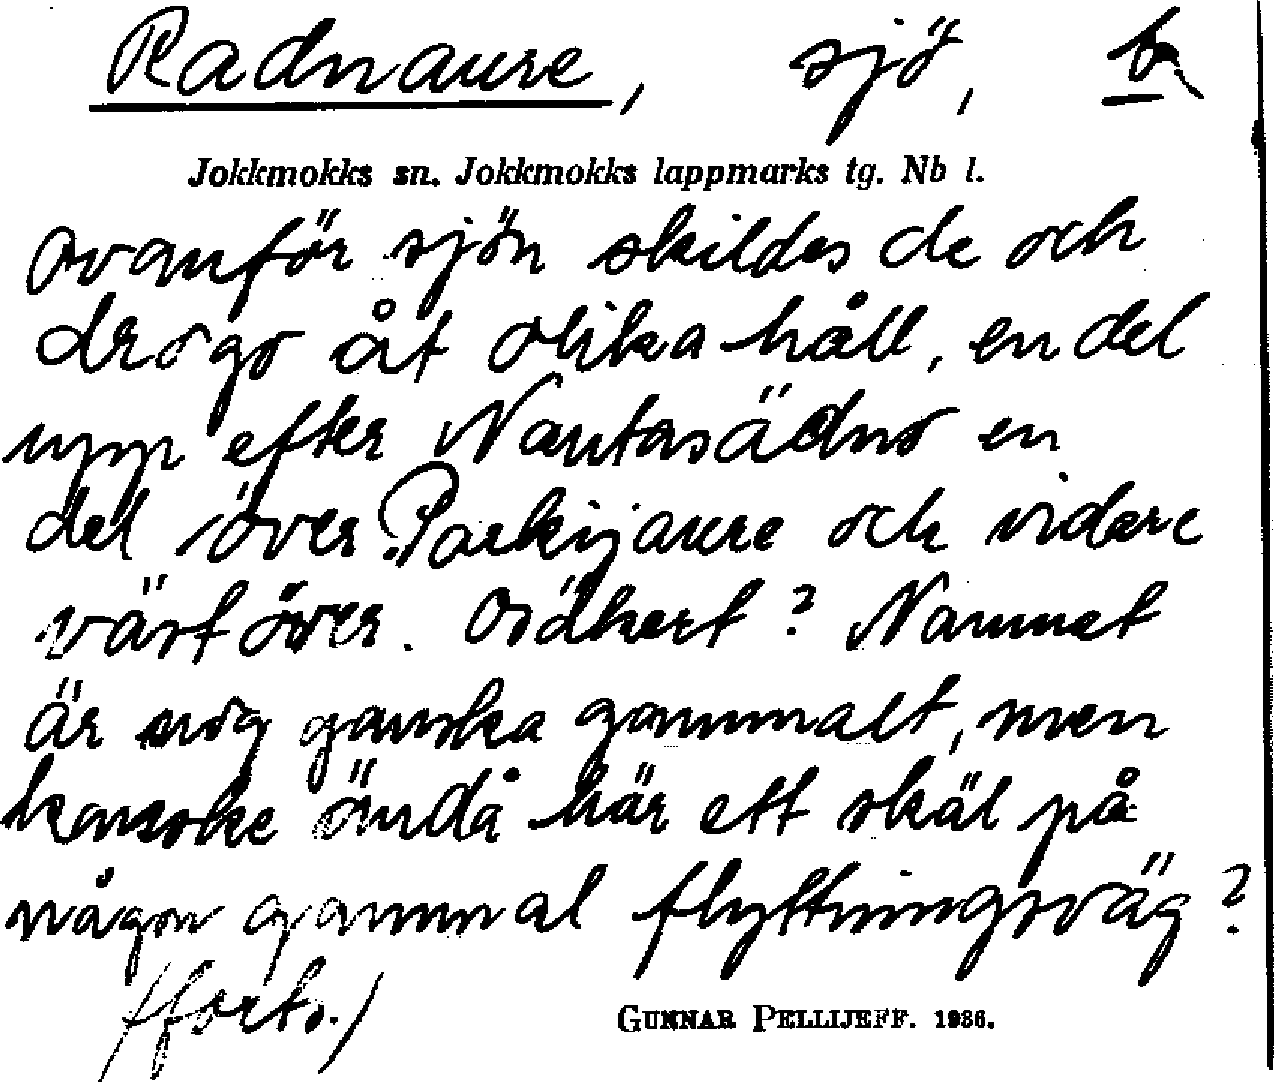 Radnaure, sjö, b
Jokkmokks sn. Jokkmokks lappmarks tg. Nb l.
ovanför sjön skildes de och
drogo åt olika håll, en del
upp efter Nautasädno en
del över Parkijaure och vidare
västöver. Osäkert? Namnet
är nog ganska gammalt, men
kanske ändå här ett skäl på
någon gammal flyttningsväg?
(forts.)
GUNNAR PELLIJEFF. 1936.